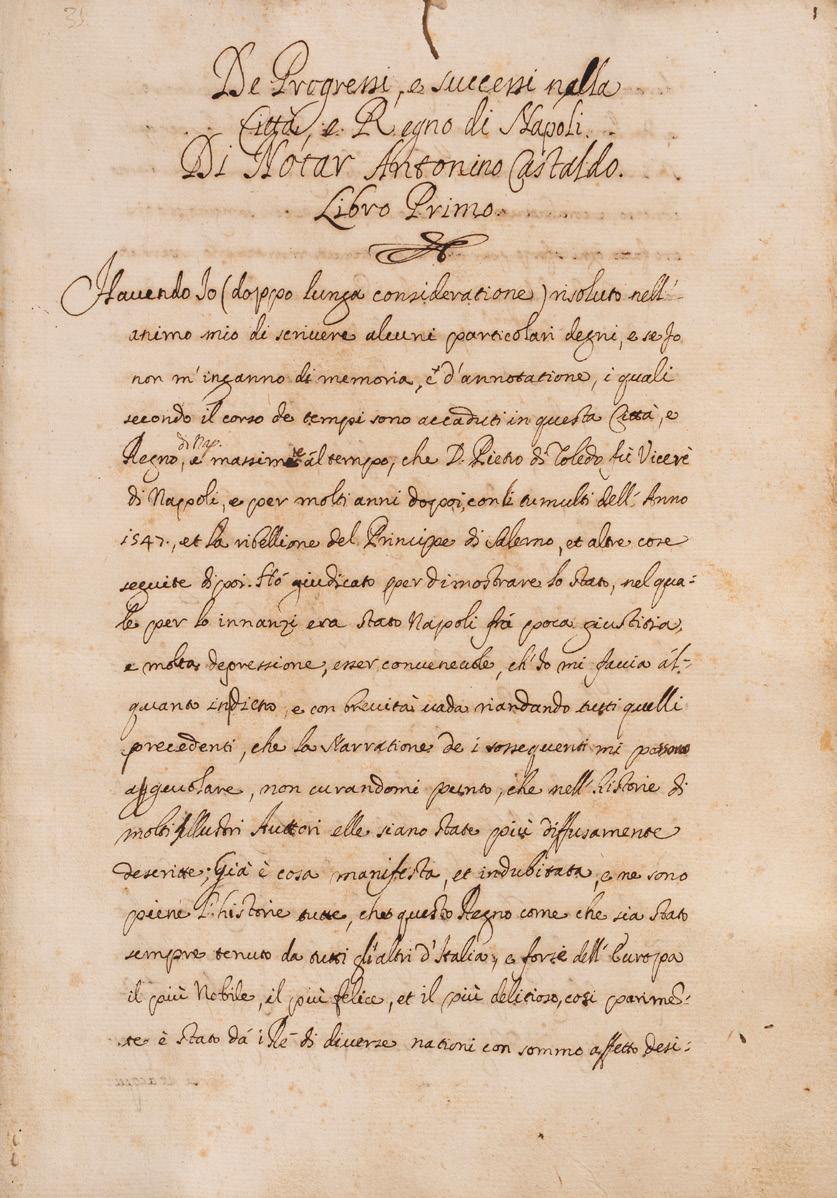 De Progressi, e successi nella
Città, e Regno di Napoli.
Di Notar Antonino Castaldo.
Libro Primo.
Havendo Io (doppo lunga consideratione) risoluto nell'
animo mio di scrivere alcuni particolari degni, e se Io
non m'inganno di memoria, è d'annotatione, i quali
secondo il corso de tempi sono accaduti in questa Città, e
di Nap.
Regno, e massimte al tempo, che D. Pietro di Toledo fù Vicerè
di Nappoli, e per molti anni doppoi, con li tumulti dell'Anno
1547., et la ribellione del Principe di Salerno, et altre cose
seguite di poi. Hò giudicato per dimostrare lo stato, nel qua=
le per lo innanzi era stato Napoli frà poca giustitia,
e molta depressione, esser conveneuole, ch'Io mi faccia àl=
quanto indietro, e con brevità vada riandando tutti quelli
precedenti, che la Narratione de i sosseguenti mi possono
aggevolare, non curandomi punto, che nell'Historie di
molti Illustri Auttori elle siano state più diffusamente
descritte; Già è cosa manifesta, et indubitata, e ne sono
piene l'historie tutte, che questo Regno come che sia stato
sempre tenuto da tutti gl'altri d'Italia, e forse dell'Europa
il più Nobile, il più felice, et il più delitioso, così parimen=
te è stato dà i Rè di diverse nationi con sommo affetto desi=